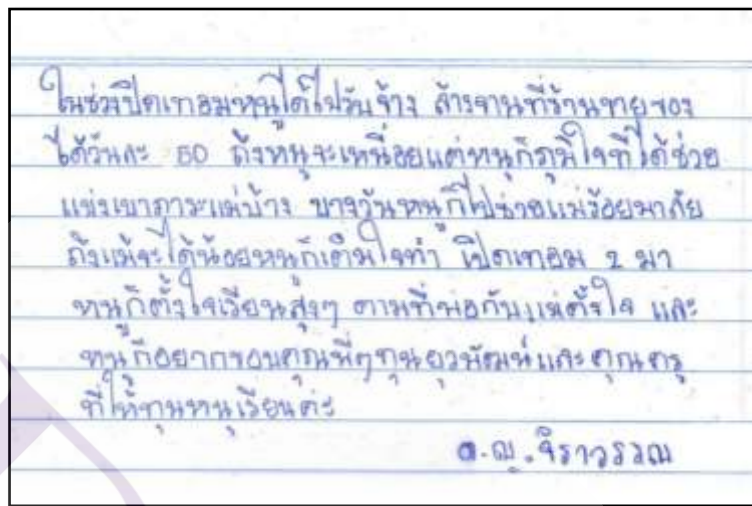 ในช่วงปิดเทอมหนูได้ไปรับจ้าง ล้างจานที่ร้านขายของ
ได้วันละ 50 ถึงหนูจะเหนื่อยแต่หนูก็ภูมิใจที่ได้ช่วย
แบ่งเบาภาระแม่บ้าง บางวันหนูก็ไปช่วยแม่ร้อยมาลัย
ถึงแม้จะได้น้อยหนูก็เต็มใจทำ เปิดเทอม 2 มา
หนูก็ตั้งใจเรียนสูงๆ ตามที่พ่อกับแม่ตั้งใจ และ
หนูก็อยากขอบคุณพี่ๆทุนยุวพัฒน์และคุณครู
ที่ให้ทุนหนูเรียนค่ะ
ด.ญ.จิราวรรณ